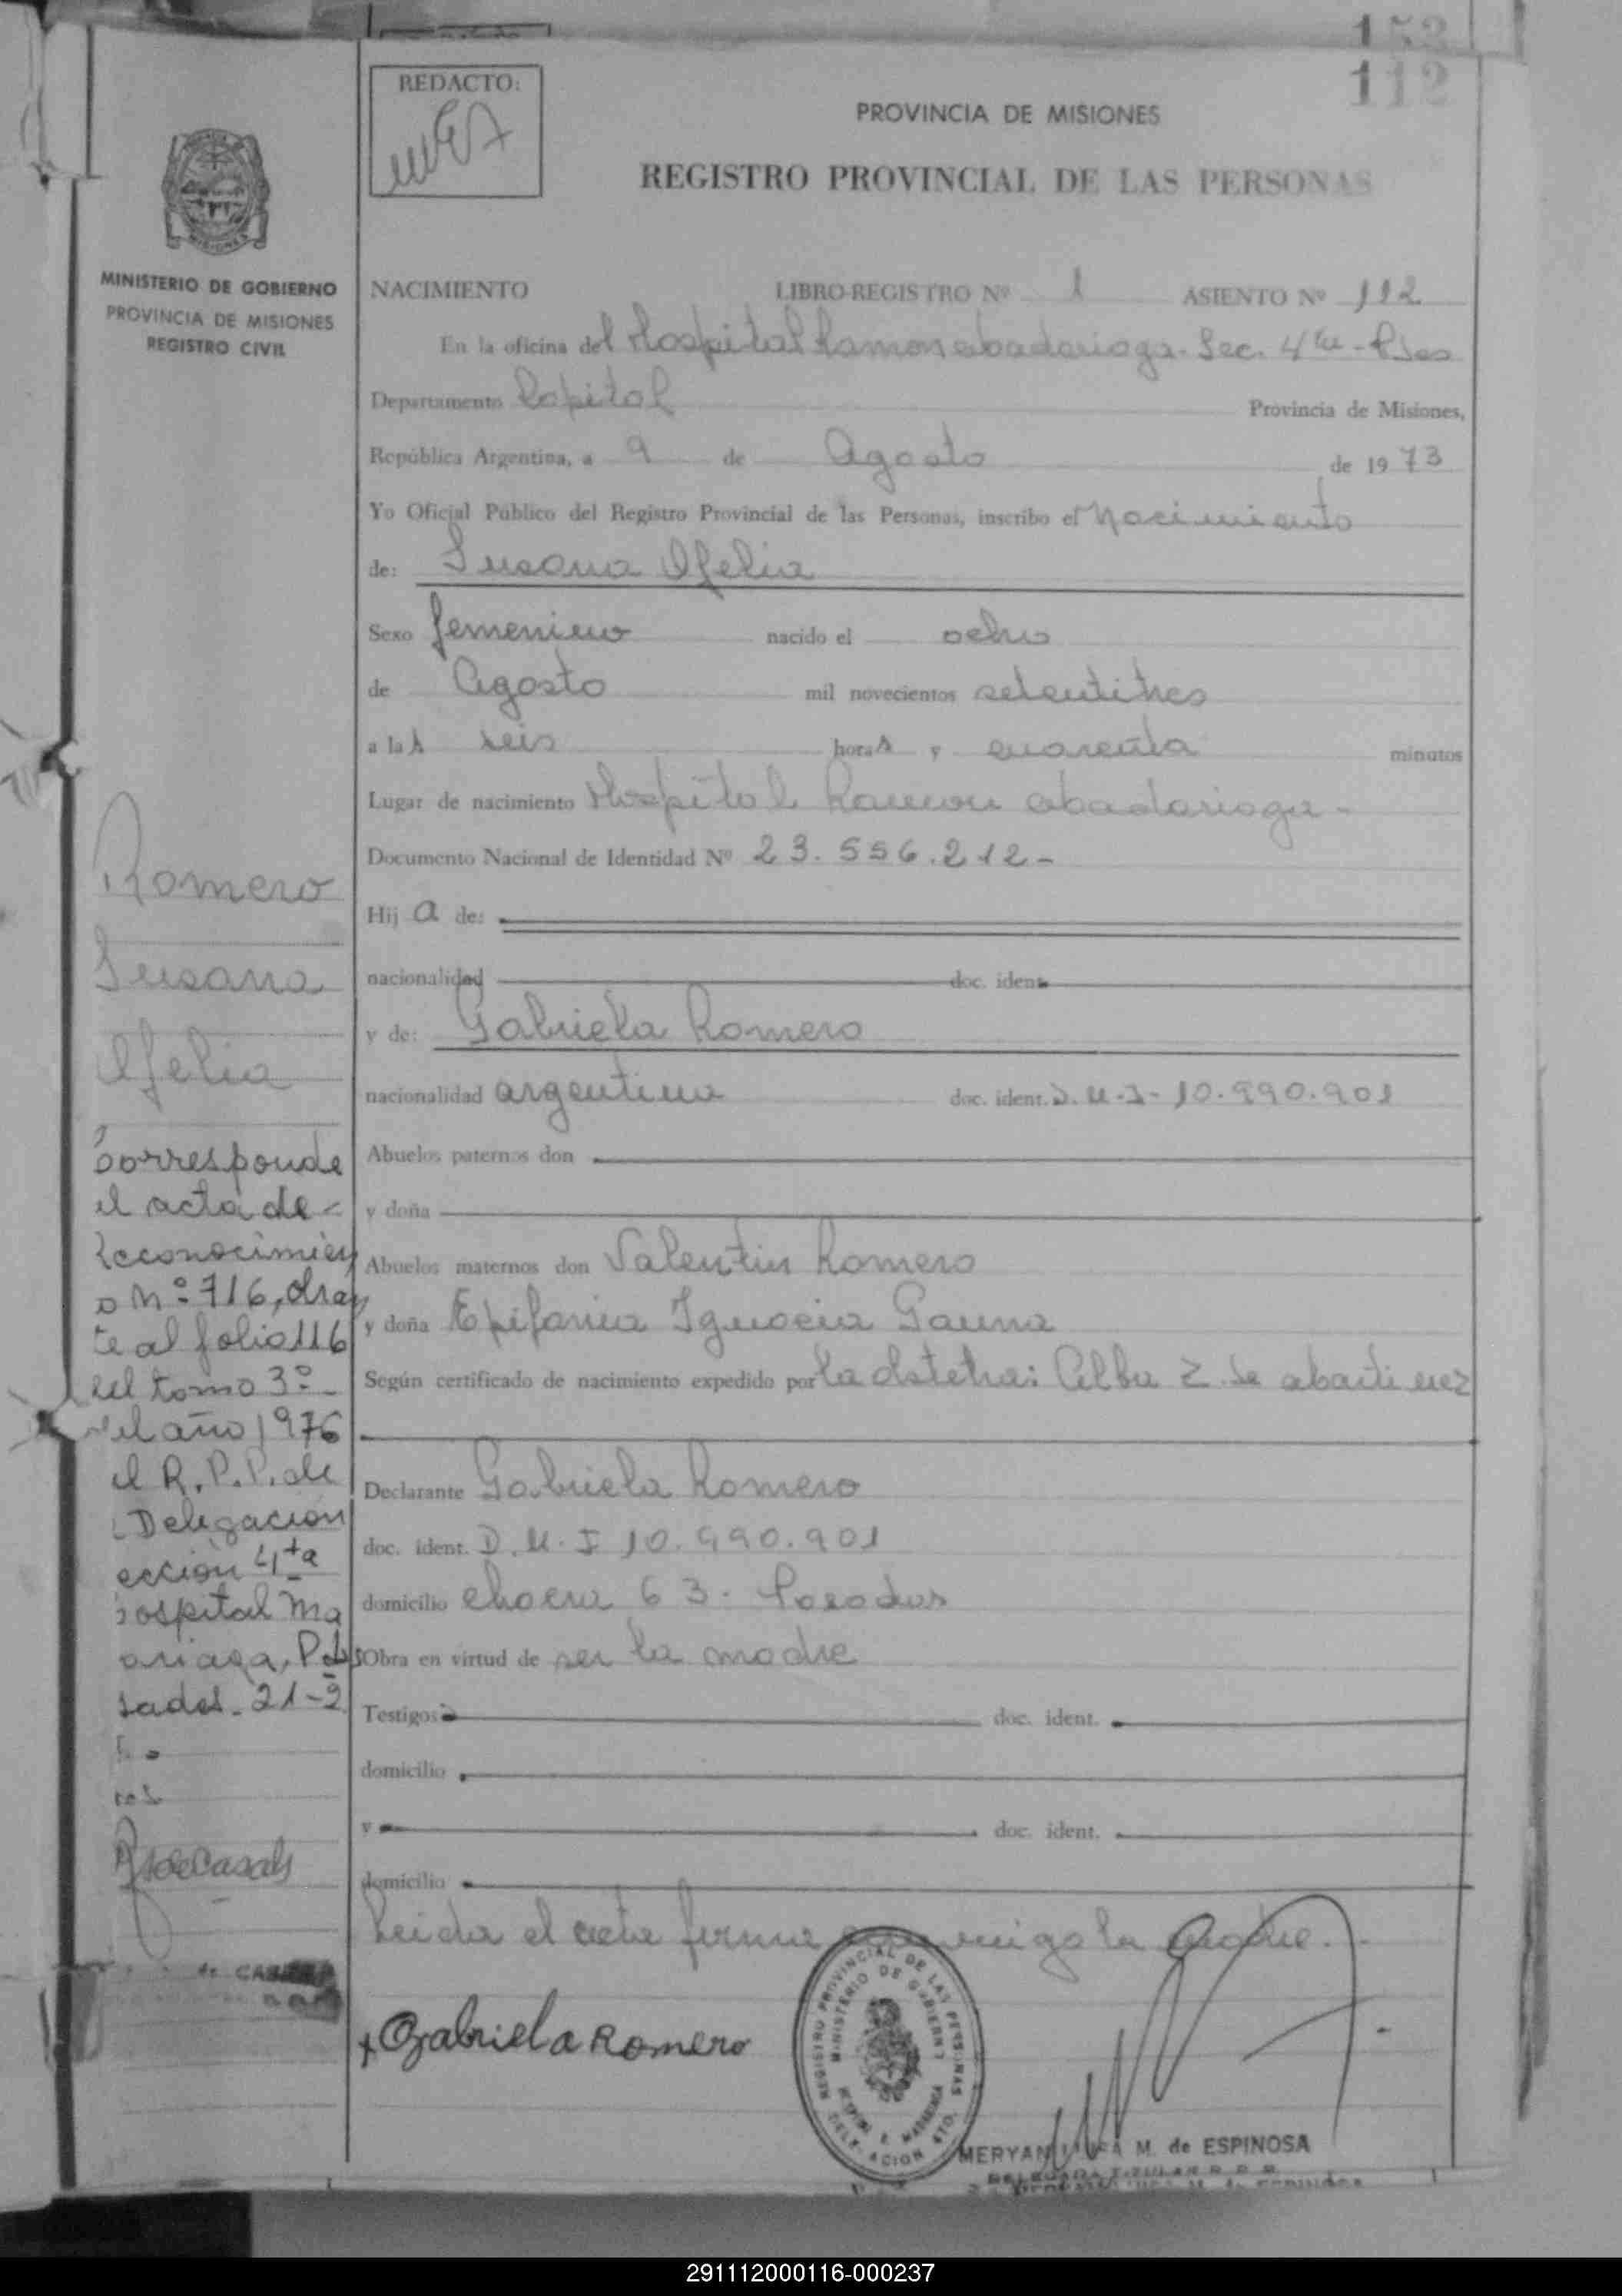 153
112
REDACTO:
PROVINCIA DE MISIONES
REGISTRO PROVINCIAL DE LAS PERSONAS
MINISTERIO DE GOBIERNO
PROVINCIA DE MISIONES
REGISTRO CIVIL
NACIMIENTO LIBRO-REGISTRO Nº 1 ASIENTO Nº 112
En la oficina del Hospital Ramon abadariaga. Sec. 4ta - Psas
Departamento Capital Provincia de Misiones,
República Argentina, a 9 de Agosto de 1973
Yo Oficial Público del Registro Provincial de las Personas, inscribo el Nacimiento
de: Susana Ofelia
Sexo femenino nacido el ocho
de Agosto mil novecientos setentitres
a las seis horas y cuarenta minutos
Lugar de nacimiento Hospital Ramon abadariaga -
Documento Nacional de Identidad Nº 23.556.212-
Hija de:
nacionalidad doc. ident.
y de: Gabriela Romero
nacionalidad argentina doc. ident. D.N.I- 10.990.901
Abuelos paternos don
y doña
Abuelos maternos don Valentin Romero
y doña Epifania Ignacia Gauna
Según certificado de nacimiento expedido por la obstetra: Alba Z. de
Declarante Gabriela Romero
doc. ident. D.N.I 10.990.901
domicilio chacra 63 - Posadas
Obra en virtud de ser la madre
Testigos doc. ident.
domicilio
y doc. ident.
domicilio
Leida el acta firma conmigo la madre.
x Gabriela Romero
REGISTRO PROVINCIAL DE LAS PERSONAS
MINISTERIO DE GOBIERNO
M. de ESPINOSA
DELEGADA TITULAR R. P. P.
Romero
Susana
Ofelia
Corresponde
el acta de
Reconocimien
o Nº 716, obran
te al folio 116
del tomo 3º
del año 1976
el R.P.P. de
Delegacion
eccion 4ta
ospital Ma
ariaga, Po
sadas. 21-9
291112000116-000237